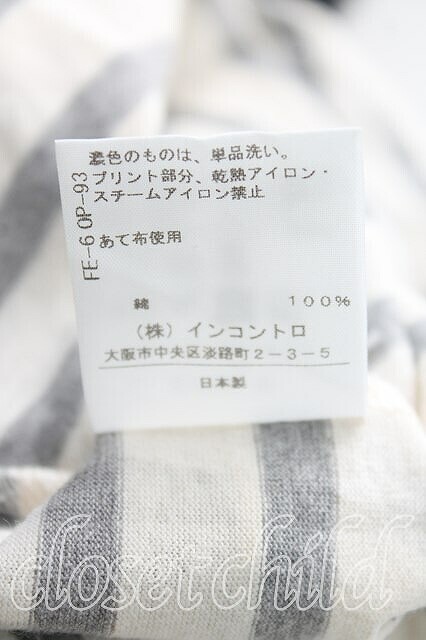 濃色のものは、単品洗い。
プリント部分、乾熱アイロン・
スチームアイロン禁止
あて布使用
FE-6 OP-93
綿 100%
(株)インコントロ
大阪市中央区淡路町2-3-5
日本製
closet child